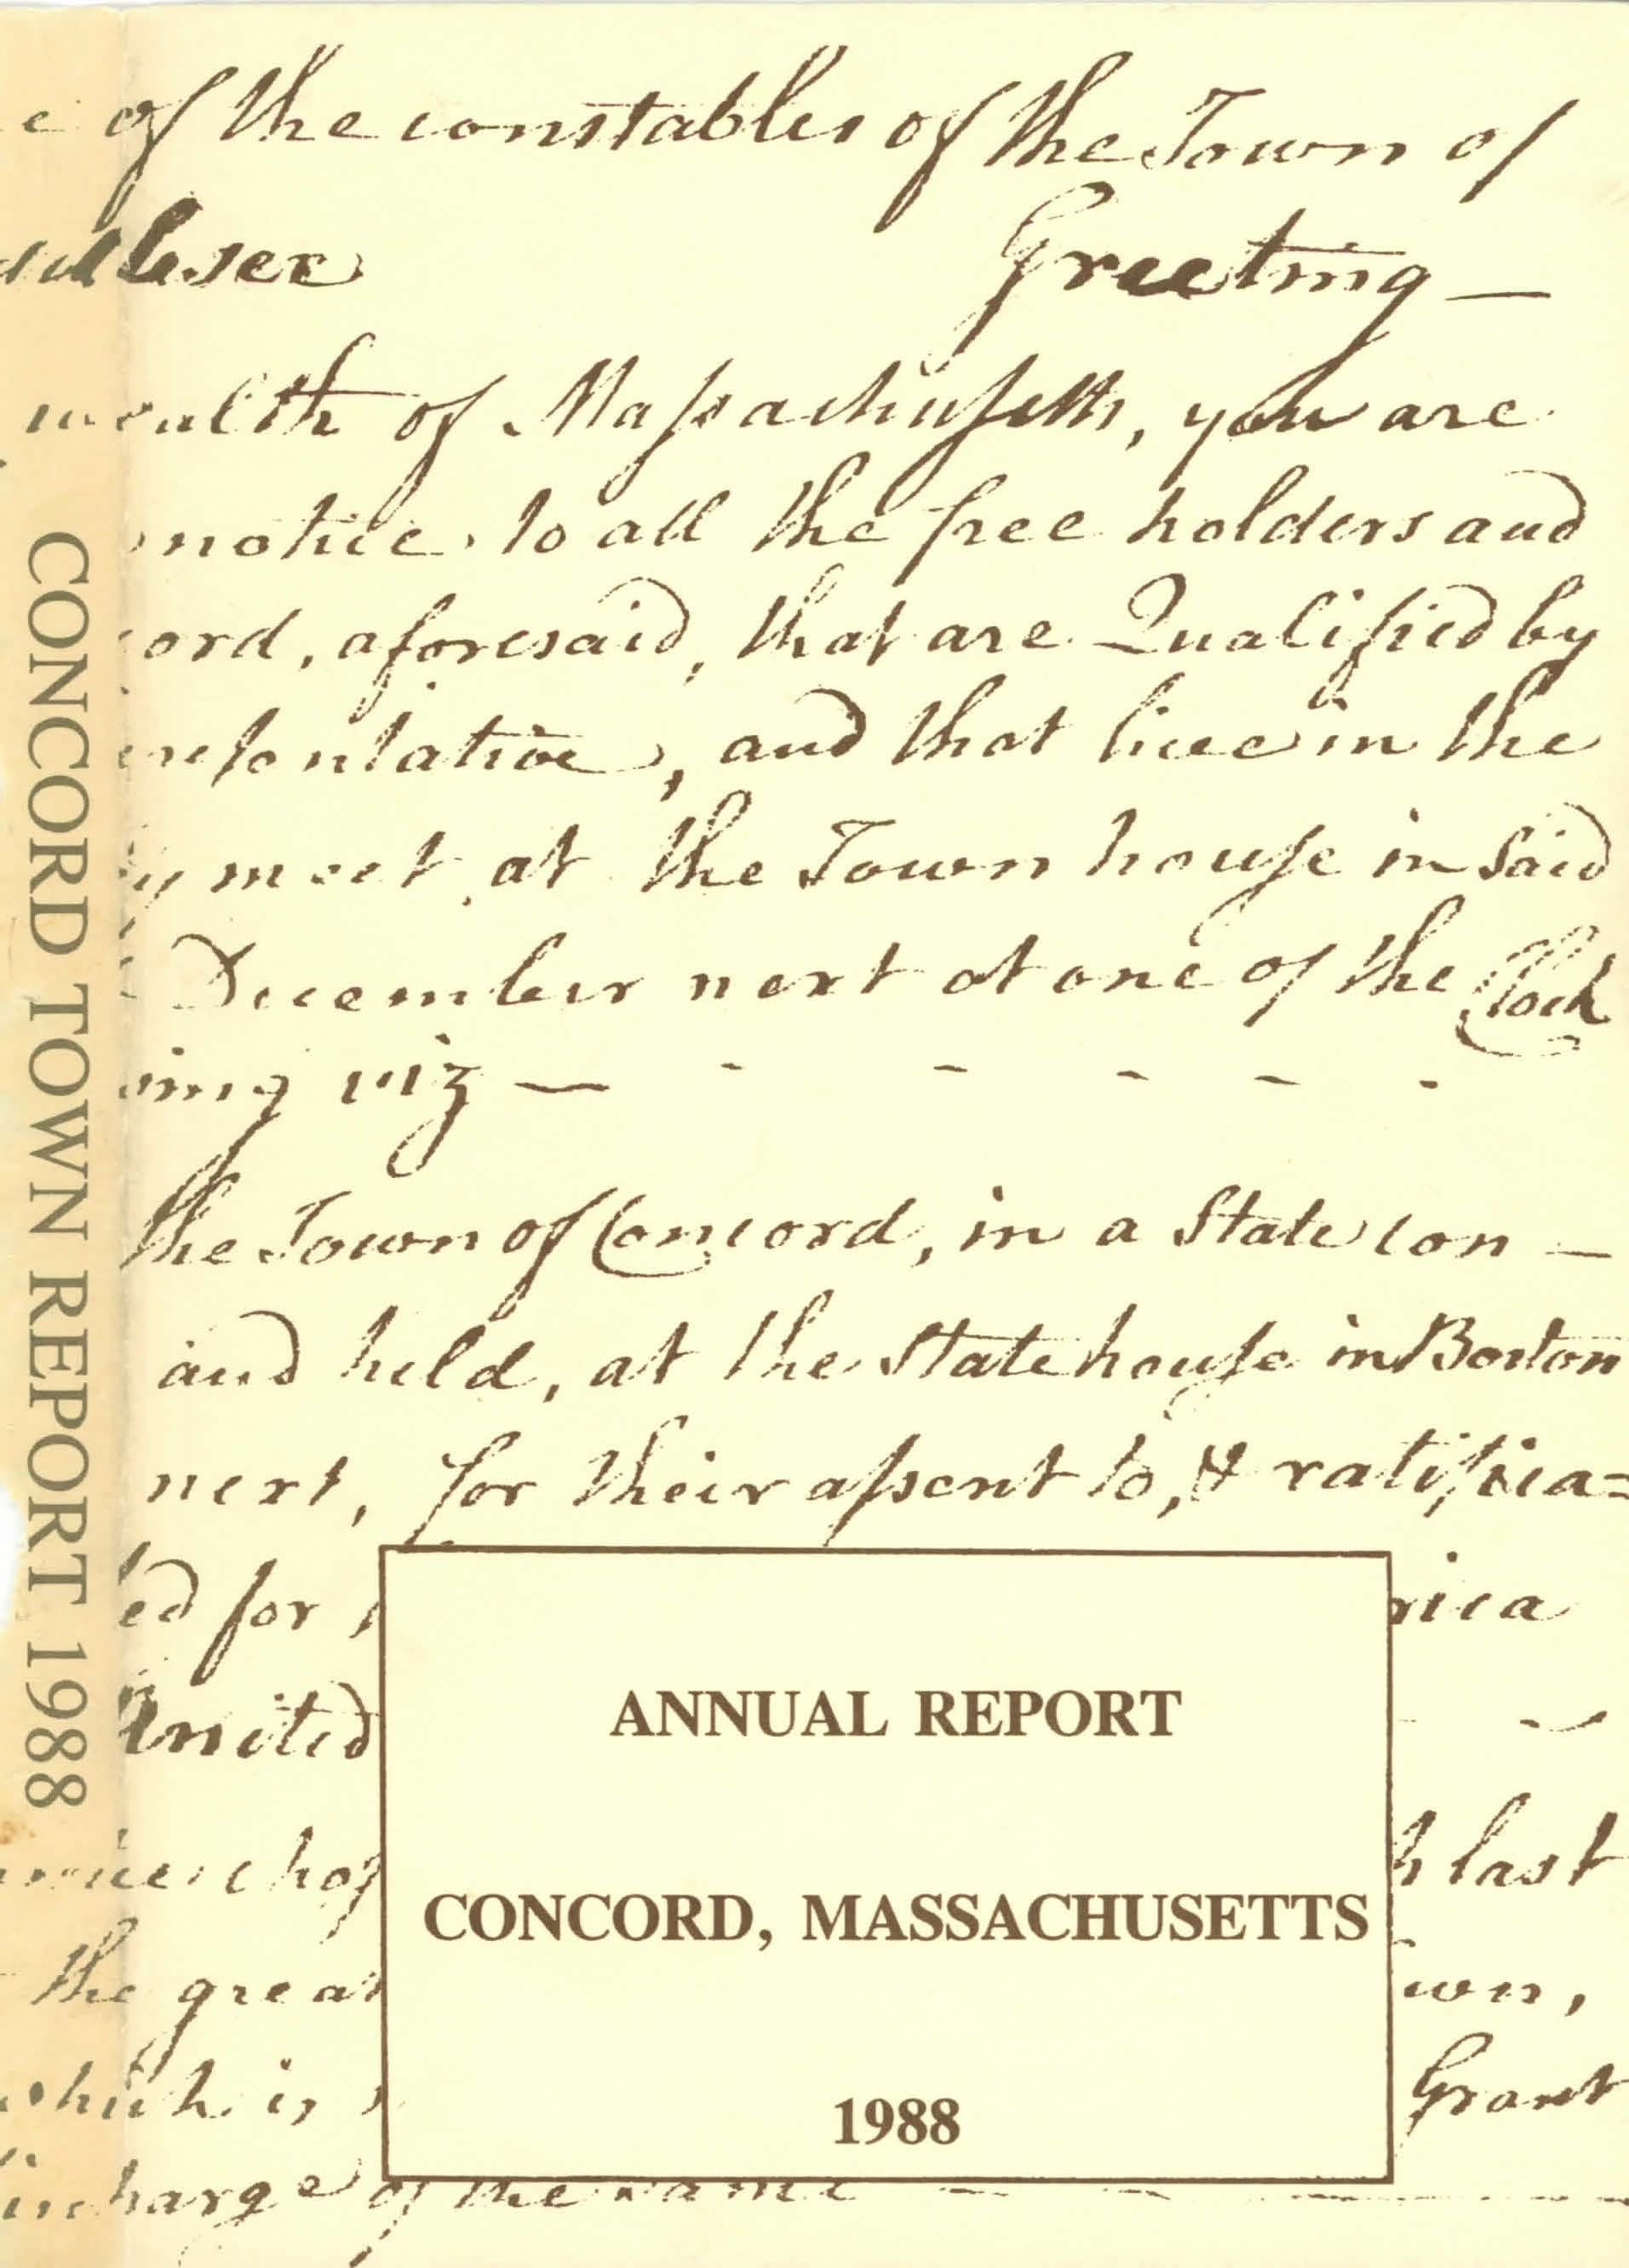 CONCORD TOWN REPORT 1988
of the constables of the Town of
Greeting —
wealth of Massachusetts, you are
notice to all the free holders and
ord, aforesaid, that are Qualified by
and that live in the
meet at the Town house in said
December next at one of the Clock
ing viz — - - - - -
the Town of Concord, in a State con —
and held, at the State house in Boston
next, for their assent to, & ratifica=
ed for rica
United
last
the great
which is Grant
of the same
ANNUAL REPORT
CONCORD, MASSACHUSETTS
1988